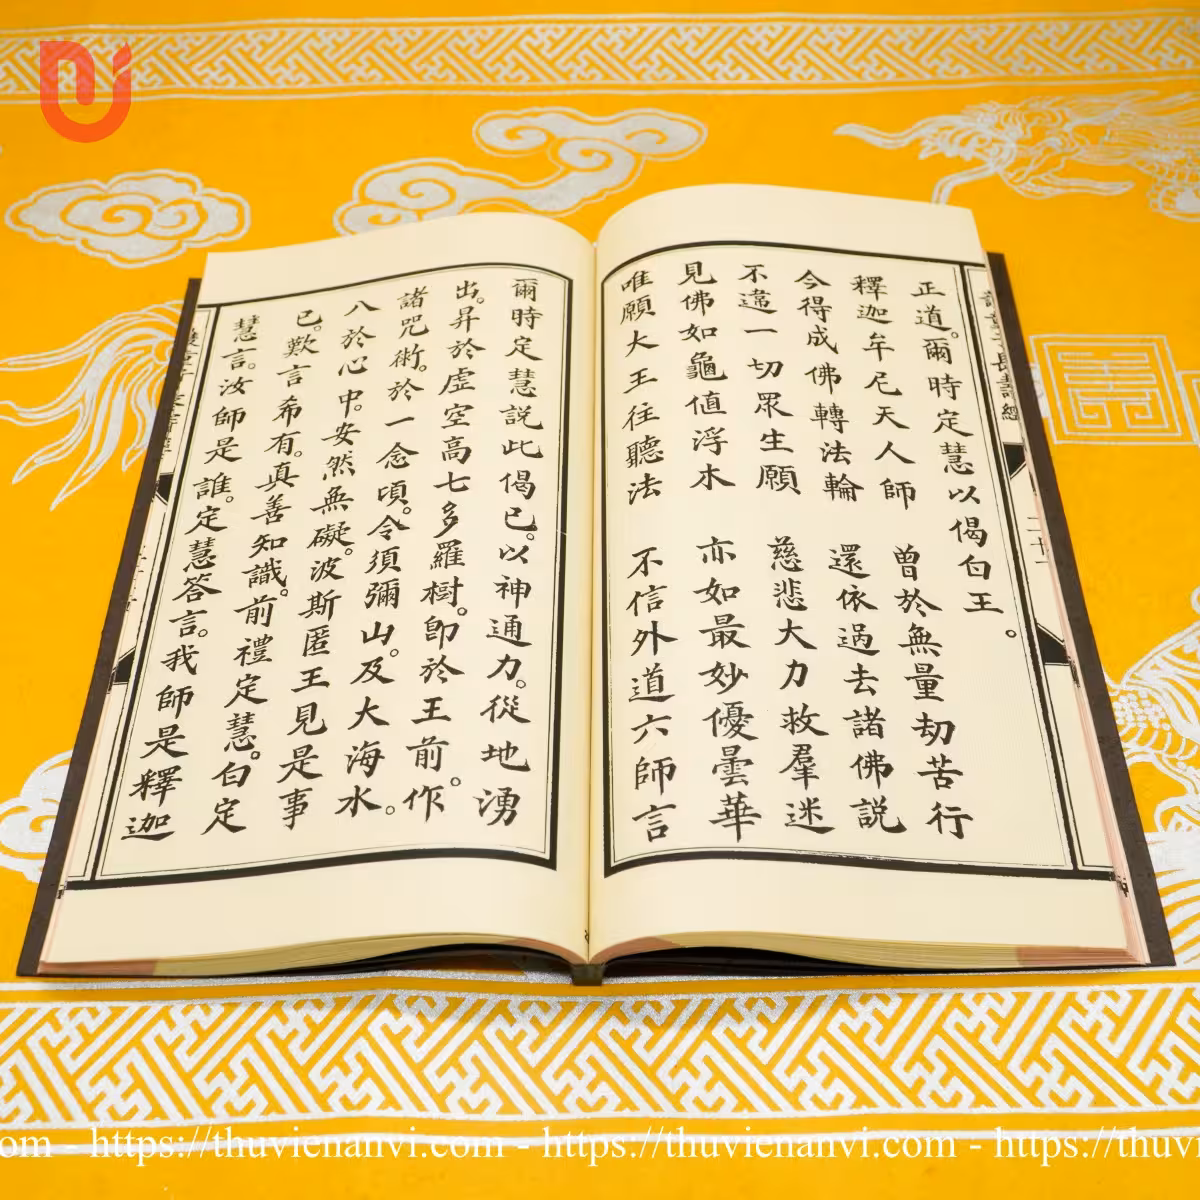 正道。爾時定慧以偈白王。
釋迦牟尼天人師 曾於無量劫苦行
今得成佛轉法輪 還依過去諸佛説
不違一切眾生願 慈悲大力救羣迷
見佛如龜值浮木 亦如最妙優曇華
唯願大王往聽法 不信外道六師言
爾時定慧説此偈已。以神通力。從地湧
出。昇於虛空高七多羅樹。即於王前。作
諸咒術。於一念頃。令須彌山。及大海水。
八於心中。安然無礙。波斯匿王見是事
已。歎言希有。真善知識。前禮定慧。白定
慧言。汝師是誰。定慧答言。我師是釋迦
https://thuvienanvi.com - https://thuvienanvi.com